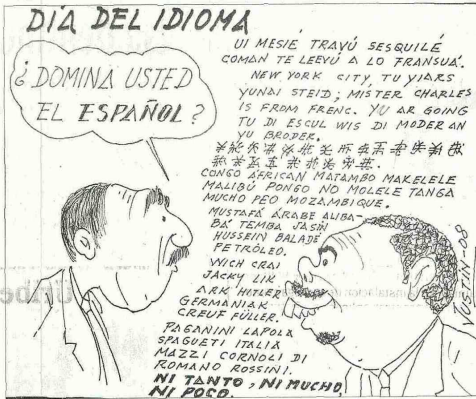 DÍA DEL IDIOMA
¿DOMINA USTED
EL ESPAÑOL?
UI MESIÉ TRAVÚ SESQUILÉ
COMAN TE LEEYÚ A LO FRANSUÁ.
NEW YORK CITY, TU YIARS
YUNAI STEID; MISTER CHARLES
IS FROM FRENC. YU AR GOING
TU DI ESCUL WIS DI MODER AN
YU BRODER.
CONGO AFRICAN MATAMBO MAKELELE
MALIBÚ PONGO NO MOLELE TANGA
MUCHO PEO MOZAMBIQUE.
MUSTAFÁ ÁRABE ALIBA-
BÁ TEMBA JASIN
HUSSEIN BALADÉ
PETRÓLEO.
WICH CRAI
JACKY LIK
ARK HITLER
GERMANIAK
CREUF FÜLLER.
PAGANINI LAPOLA
SPAGUETI ITALIA
MAZZI CORNOLI DI
ROMANO ROSSINI.
NI TANTO, NI MUCHO,
NI POCO.